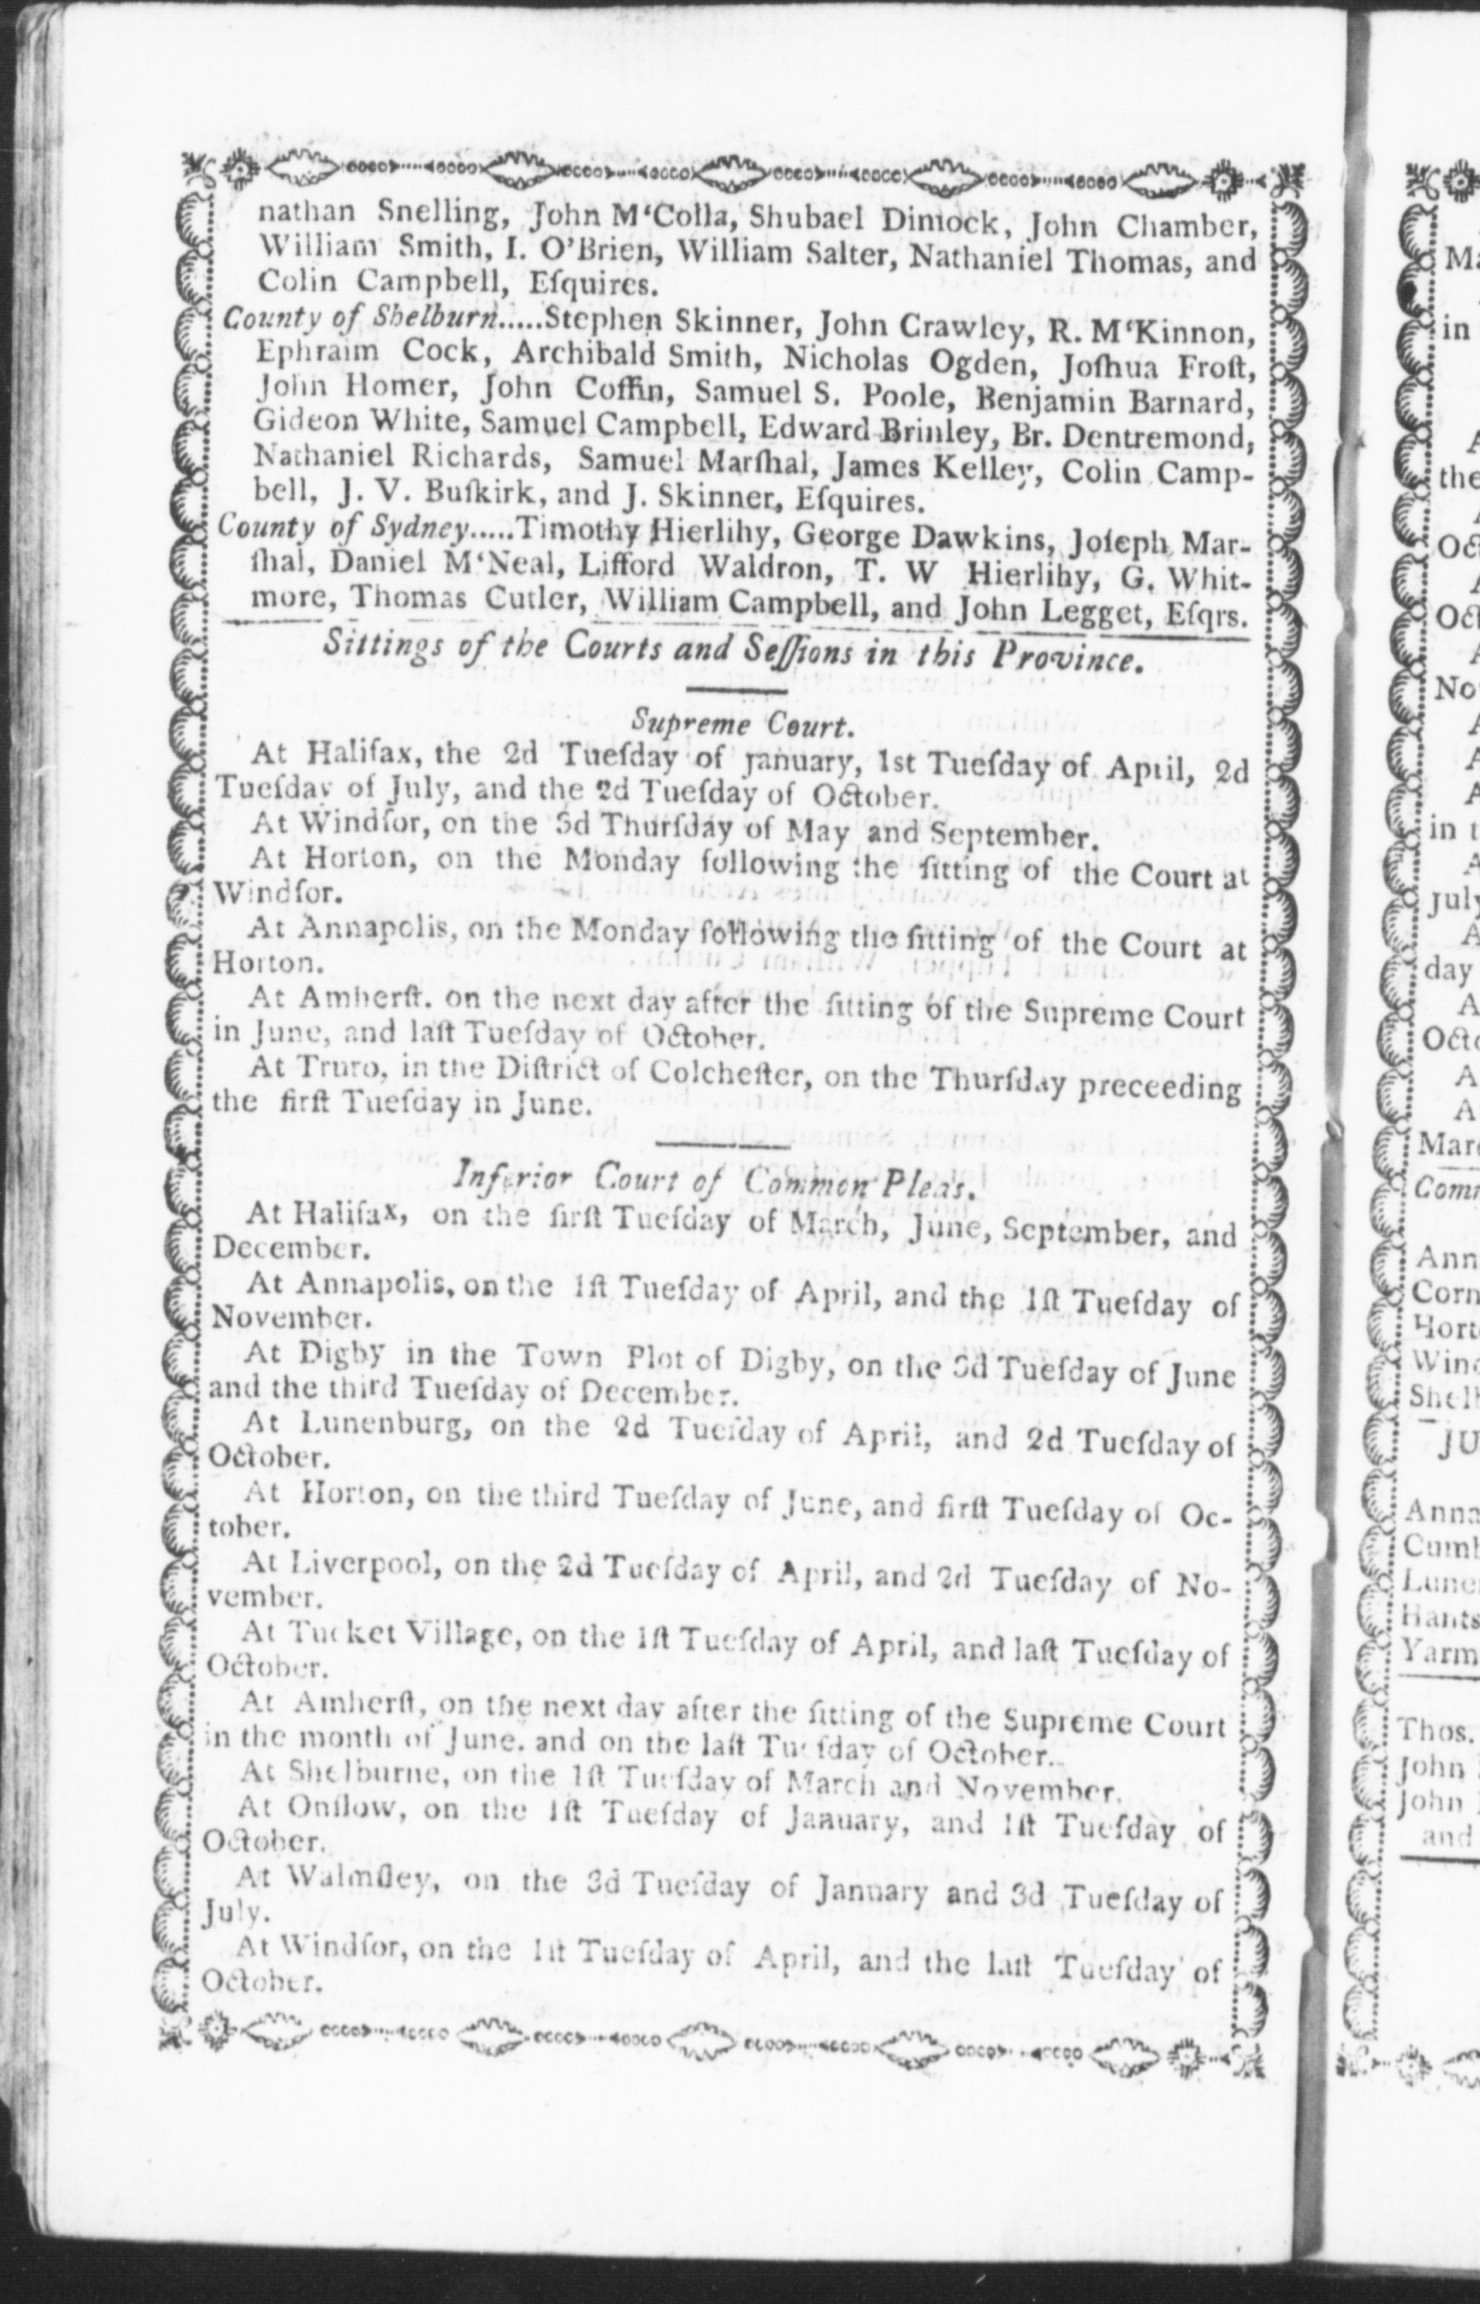 nathan Snelling, John M‘Colla, Shubael Dimock, John Chamber,
William Smith, I. O’Brien, William Salter, Nathaniel Thomas, and
Colin Campbell, Eſquires.
County of Shelburn.....Stephen Skinner, John Crawley, R. M‘Kinnon,
Ephraim Cock, Archibald Smith, Nicholas Ogden, Joſhua Froſt,
John Homer, John Coffin, Samuel S. Poole, Benjamin Barnard,
Gideon White, Samuel Campbell, Edward Brinley, Br. Dentremond,
Nathaniel Richards, Samuel Marſhal, James Kelley, Colin Camp-
bell, J. V. Buſkirk, and J. Skinner, Eſquires.
County of Sydney.....Timothy Hierlihy, George Dawkins, Joſeph Mar-
ſhal, Daniel M‘Neal, Lifford Waldron, T. W Hierlihy, G. Whit-
more, Thomas Cutler, William Campbell, and John Legget, Eſqrs.
Sittings of the Courts and Seſſions in this Province.
Supreme Court.
At Halifax, the 2d Tueſday of January, 1st Tueſday of April, 2d
Tueſday of July, and the 2d Tueſday of October.
At Windſor, on the 3d Thurſday of May and September.
At Horton, on the Monday following the ſitting of the Court at
Windſor.
At Annapolis, on the Monday following the ſitting of the Court at
Horton.
At Amherſt. on the next day after the ſitting of the Supreme Court
in June, and laſt Tueſday of October.
At Truro, in the Diſtrict of Colcheſter, on the Thurſday preceeding
the firſt Tueſday in June.
Inferior Court of Common Pleas.
At Halifax, on the firſt Tueſday of March, June, September, and
December.
At Annapolis, on the 1ſt Tueſday of April, and the 1ſt Tueſday of
November.
At Digby in the Town Plot of Digby, on the 3d Tueſday of June
and the third Tueſday of December.
At Lunenburg, on the 2d Tueſday of April, and 2d Tueſday of
October.
At Horton, on the third Tueſday of June, and firſt Tueſday of Oc-
tober.
At Liverpool, on the 2d Tueſday of April, and 2d Tueſday of No-
vember.
At Tucket Village, on the 1ſt Tueſday of April, and laſt Tueſday of
October.
At Amherſt, on the next day after the ſitting of the Supreme Court
in the month of June. and on the laſt Tueſday of October.
At Shelburne, on the 1ſt Tueſday of March and November.
At Onſlow, on the 1ſt Tueſday of January, and 1ſt Tueſday of
October.
At Walmſley, on the 3d Tueſday of January and 3d Tueſday of
July.
At Windſor, on the 1ſt Tueſday of April, and the laſt Tueſday of
October.
in
the
in
July
day
Thos.
John
John
and